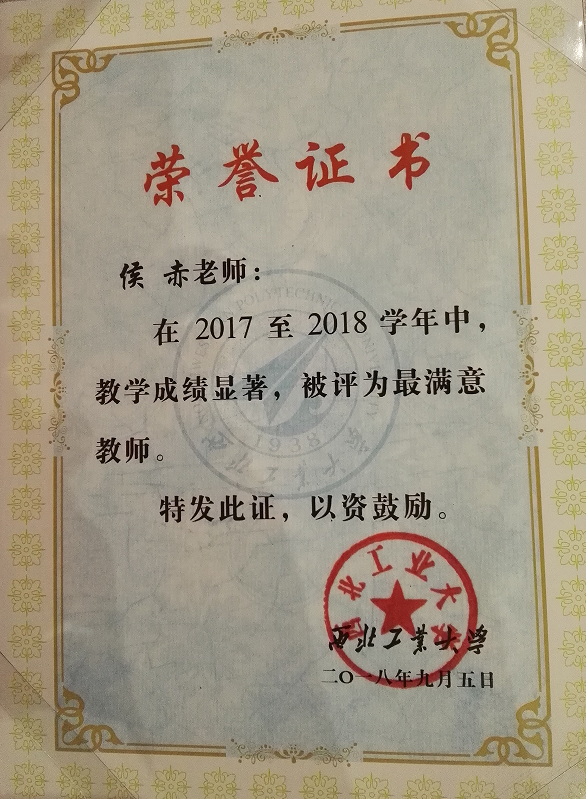 荣誉证书
侯 赤老师：
在 2017 至 2018 学年中，
教学成绩显著，被评为最满意
教师。
特发此证，以资鼓励。
西北工业大学
西北工业大学
二〇一八年九月五日
1938
西北工业大学